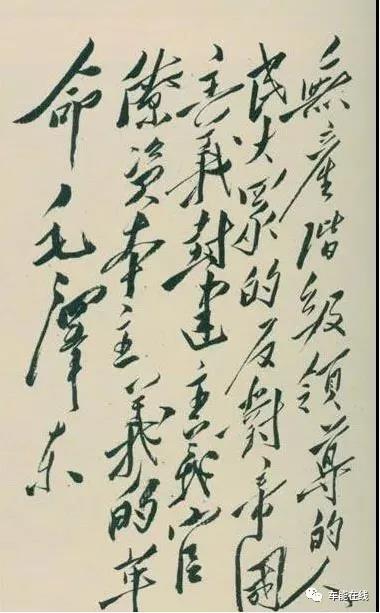 無産階級領導的人
民大眾的反對帝國
主義封建主義官
僚資本主義的革
命 毛澤东
车能在线